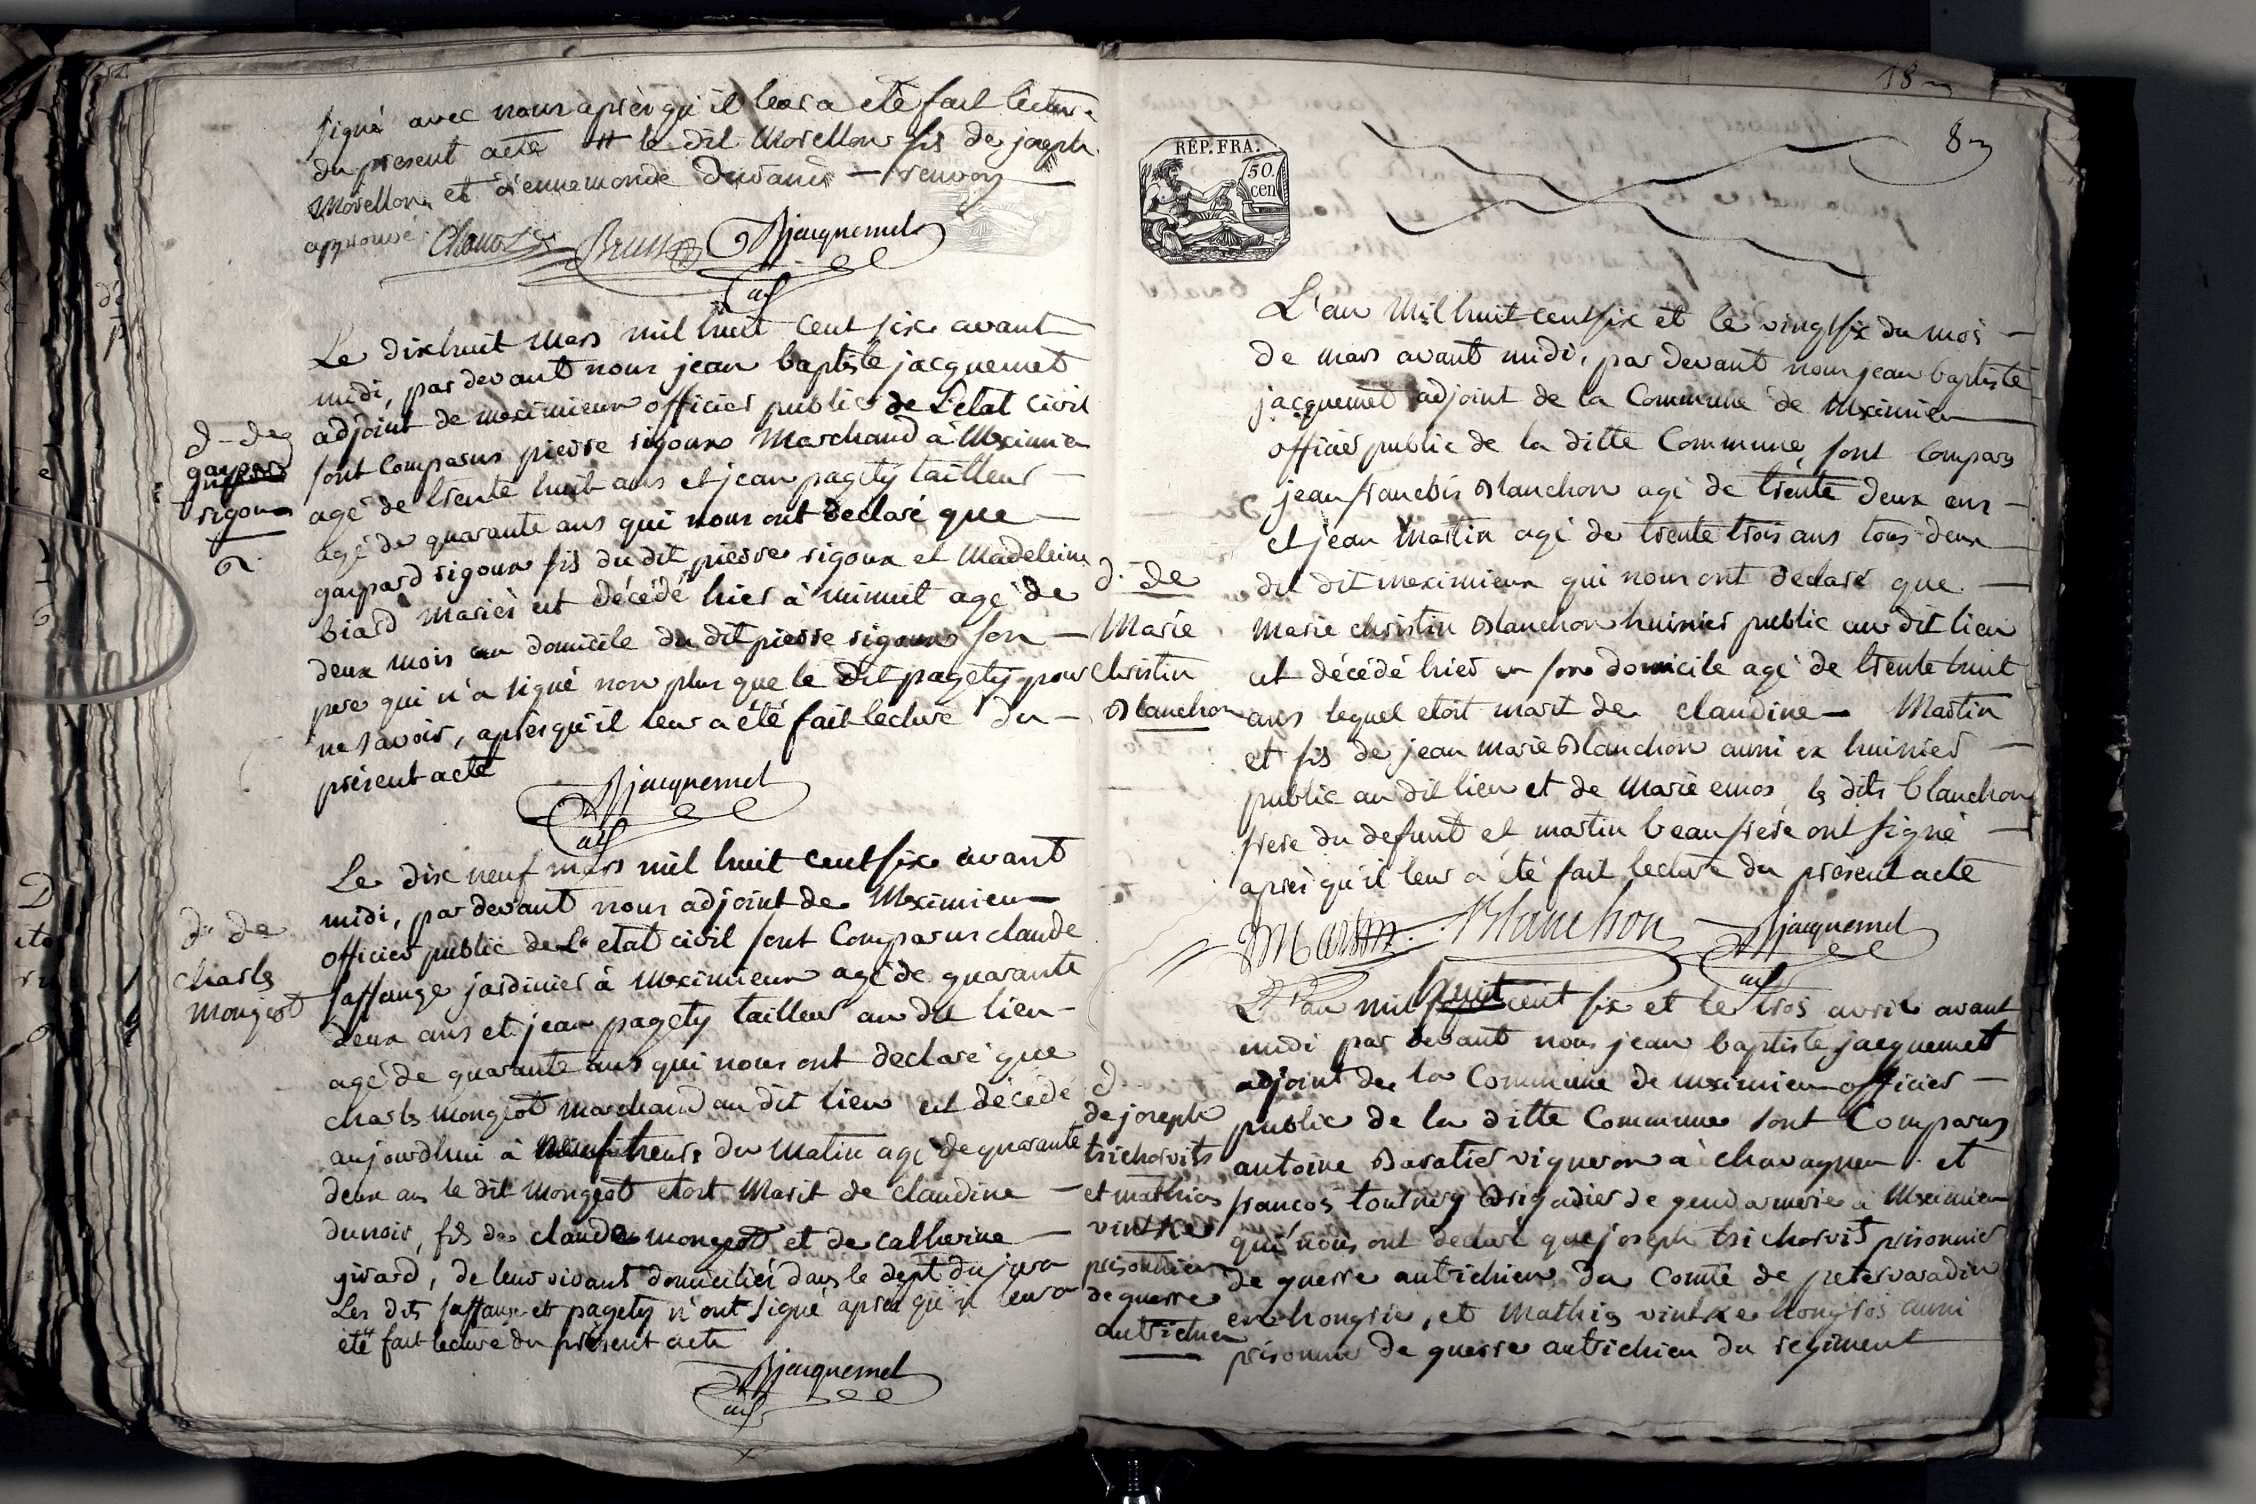 signé avec nous après qu'il leur a eté fait lecture
du present acte # le dit Morellon fils de joseph
Morellon et d'ennemonde — renvoy
approuvé
Bjacquemet
adj
Le dixhuit mars mil huit cent six avant
midi, par devant nous jean baptiste jacquemet
adjoint de meximieux officier public de L'etat civil
sont Comparus pierre rigoux Marchand à Meximieu
agé de trente huit ans et jean pagety tailleur —
agé de quarante ans qui nous ont declaré que —
gaspard rigoux fils du dit pierre rigoux et Madeleine
biard mariés est décédé hier à minuit agé de
deux mois au domicile du dit pierre rigoux son —
pere qui n'a signé non plus que le dit pagety pour
ne savoir, après qu'il leur a été fait lecture du —
présent acte
d– de
gaspard
rigoux
Bjacquemet
adj
Le dix neuf mars mil huit cent six avant
midi, par devant nous adjoint de Meximieu
officier public de L'etat civil sont Comparus claude
saffange jardinier à Meximieux agé de quarante
deux ans et jean pagety tailleur au dit lieu –
agé de quarante ans qui nous ont declaré que
charles mongeot marchand au dit lieu est décédé
aujourdhui à neuf heures du matin agé de quarante
deux ans le dit Mongeot etoit Marit de claudine —
dunoir, fils de claude mongeot et de catherine —
girard, de leur vivant domiciliés dans le dept du jura
Les dits saffange et pagety n'ont signé après qu'il leur a
été fait lecture du présent acte
dn de
charles
mongeot
Bjacquemet
adj
18
8
REP. FRA.
50.
cen
L'an Mil huit cent six et le vingt six du mois —
de mars avant midi, par devant nous jean baptiste
jacquemet adjoint de la Commune de Meximieu
officier public de la ditte Commune, sont comparus
jean francois Blanchon agé de trente deux ans —
et jean Martin agé de trente trois ans tous deux
du dit meximieux qui nous ont declaré que —
Marie christin Blanchon huissier public au dit lieu
est décédé hier en son domicile agé de trente huit
ans lequel etoit marit de claudine — Martin
et fils de jean marie Blanchon aussi ex huissier —
public au dit lieu et de Marie emos, les dits blanchon
frere du defunt et martin beaufrere ont signé —
après qu'il leur a été fait lecture du présent acte
d. de
Marie
christin
Blanchon
JMartin Blanchon Bjacquemet
adj
L'an mil huit cent six et le trois avril avant
midi par devant nous jean baptiste jacquemet
adjoint de la Commune de meximieu officier —
public de la ditte Commune sont Comparus
antoine Baratier vigneron à chavagneu et
francois toutnry Brigadier de gendarmerie à Meximieu
qui nous ont declaré que joseph trichorvits prisonnier
de guerre autrichien du Comté de petervaradin
en hongrie, et Mathis vintre hongrois aussi
prisonnier de guerre autrichien du regiment
d –
de joseph
trichorvits
et mathis
vintre
prisonnier
de guerre
autrichien